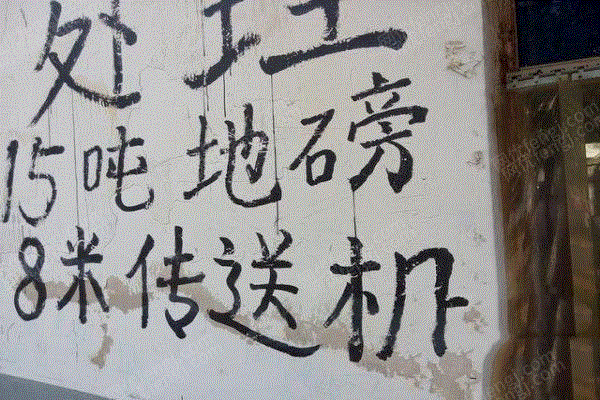 处理
15吨地磅
8米传送机